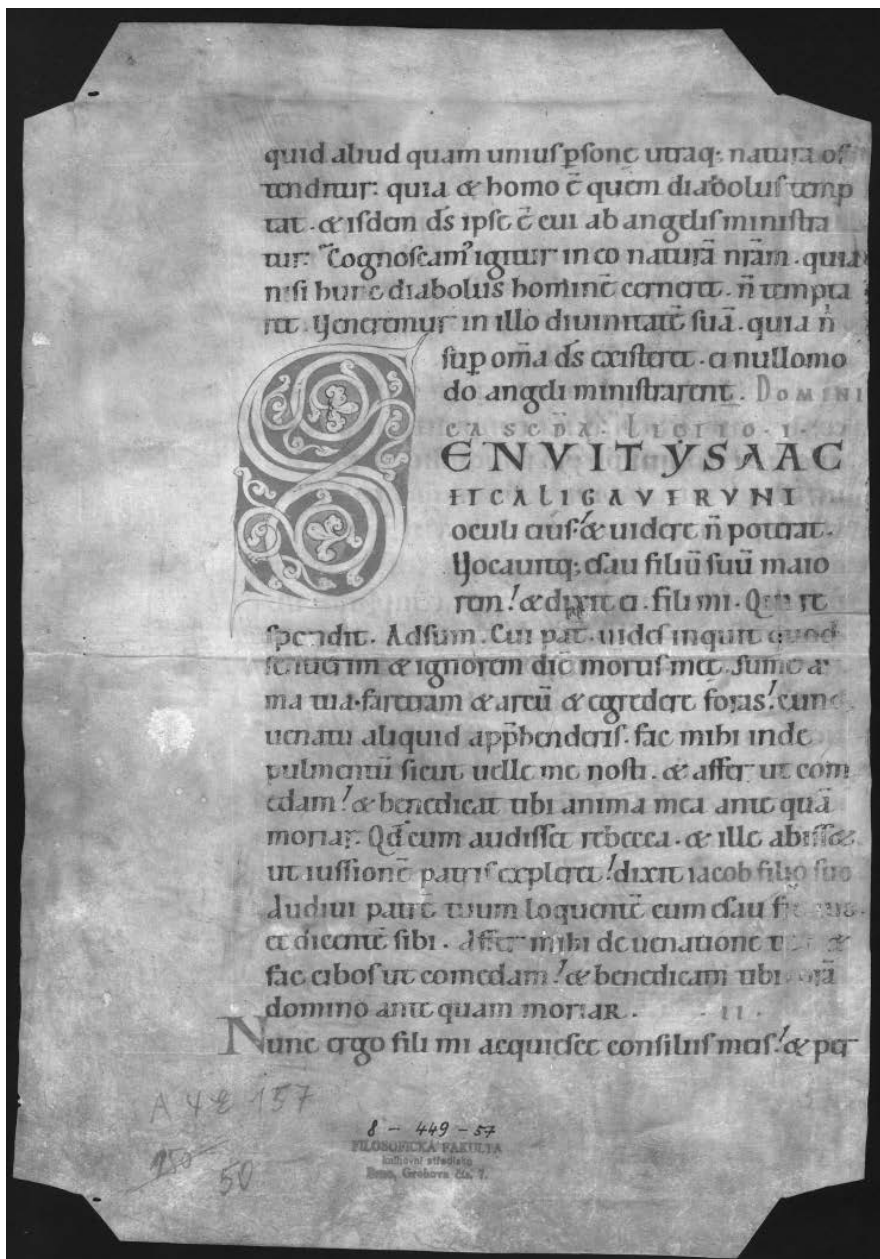 quid aliud quam unius ꝑsonę utraq; natura os
tenditur. quia & homo ē quem diabolus temp
tat. & isdem d̄s ipse ē cui ab angelis ministra
tur. Cognoscam᾽ igitur in eo naturā nr̄am. quia
nisi hunc diabolus hominē cerneret. n̄ tempta
ret. Veneremur in illo diuinitatē suā. quia n̄
sup om̄a d̄s existeret. ei nullomo
do angeli ministrarent. DOMINI
CA SCDA. LECTIO. I.
SENVIT YSAAC
ET CALIGAVERVNT
oculi eius. & uidere n̄ poterat.
Vocauitq; esau filiū suū maio
rem. & dixit ei. fili mi. Qui re
spondit. Adsum. Cui pat̄. uides inquit quod
senuerim & ignorem diē mortis meę. sume ar
ma tua. faretram & arcū & egredere foras. cumq;
uenatu aliquid app̄henderis. fac mihi inde
pulmentū sicut uelle me nosti. & affer ut com
edam. & benedicat tibi anima mea ante quā
moriar. Qd̄ cum audisset rebecca. & ille abisset
ut iussionē patris expleret. dixit iacob filio suo
Audiui patrē tuum loquentē cum esau
et dicentē sibi. Affer mihi de uenatione &
fac cibos ut comedam. & benedicam tibi
domino ante quam moriar. II.
Nunc ergo fili mi acquiesce consiliis meis. & per
A 4 E 157
8 - 449 - 57
FILOSOFICKÁ FAKULTA
knihovní středisko
Brno, Grohova čís. 7.
250
50